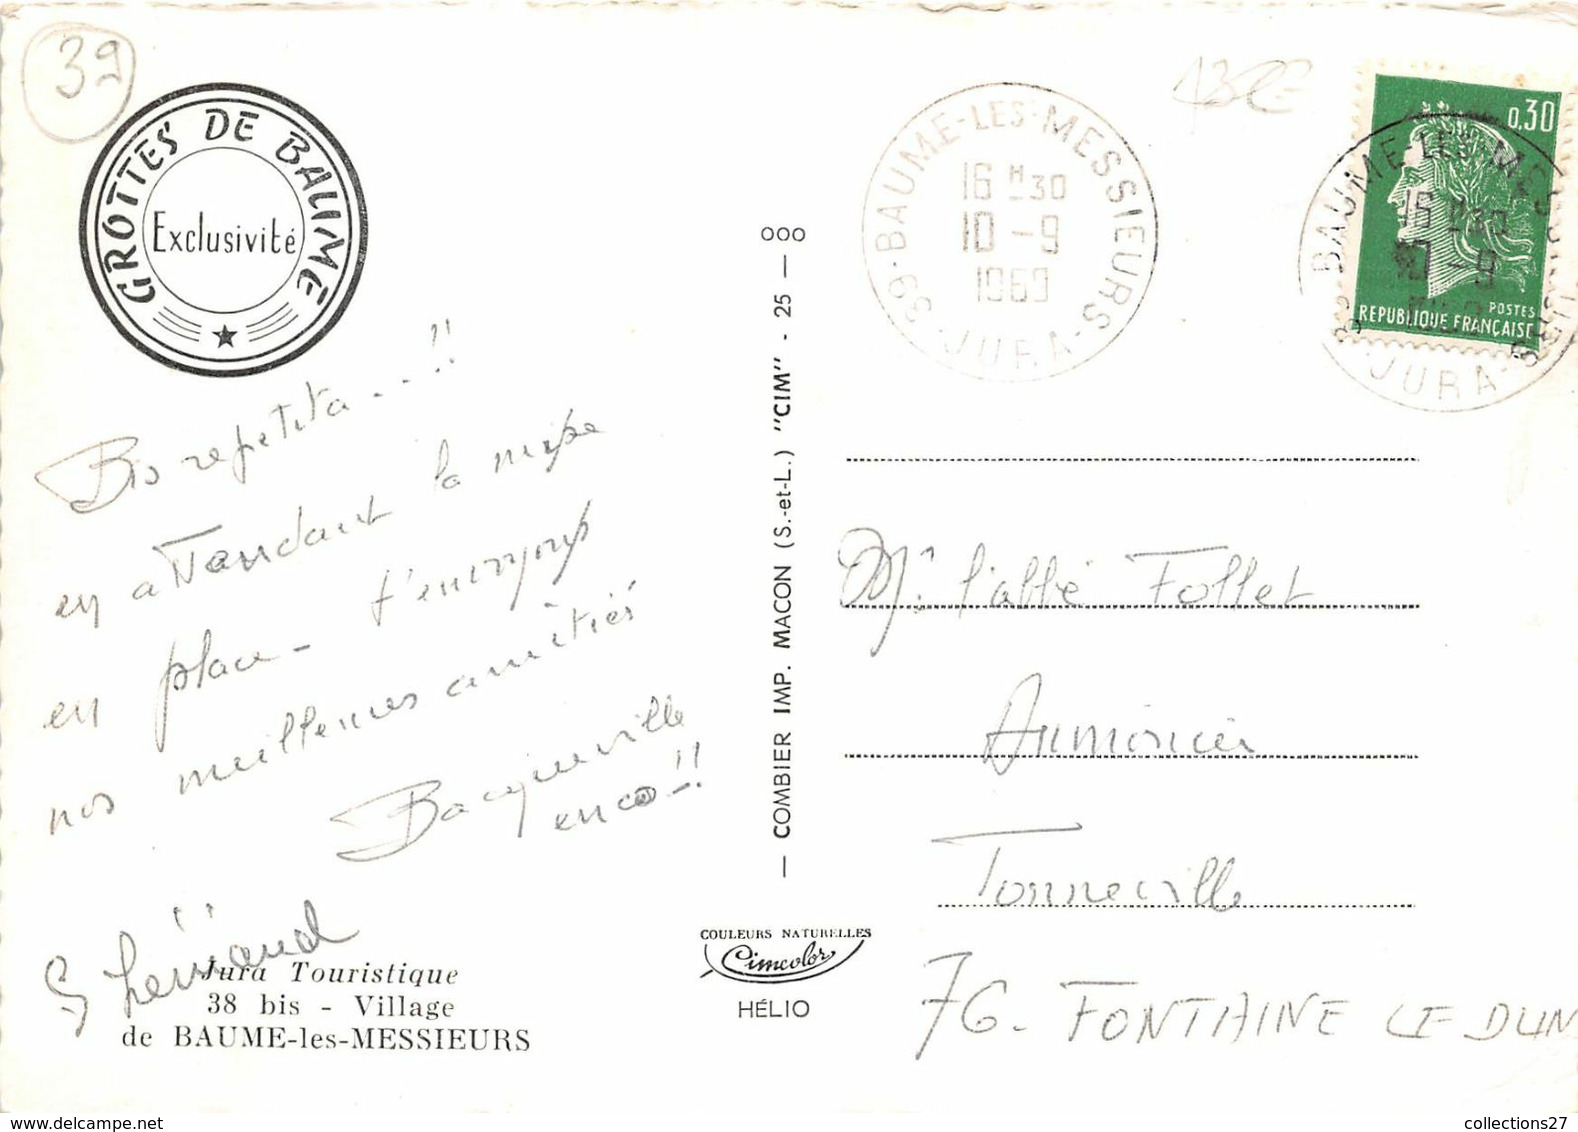 39
GROTTES DE BAUME
Exclusivité
Bis repetita ...!!
en attendant la mise
en place - t'envoyons
nos meilleures amitiés
Bacqueville
en co-!!
Jura Touristique
38 bis - Village
de BAUME-les-MESSIEURS
— COMBIER IMP. MACON (S.-et-L.) "CIM" - 25 — 000
COULEURS NATURELLES
Cimcolor
HÉLIO
39-BAUME-LES-MESSIEURS-JURA-
16 H 30
10 -9
1969
BAUME-LES-MESSIEURS
16 H 30
10 -9
1969
-JURA-
0,30
POSTES
REPUBLIQUE FRANÇAISE
Mr. l'abbé Follet
Aumônier
Tonneville
76 - FONTAINE LE DUN
collections27